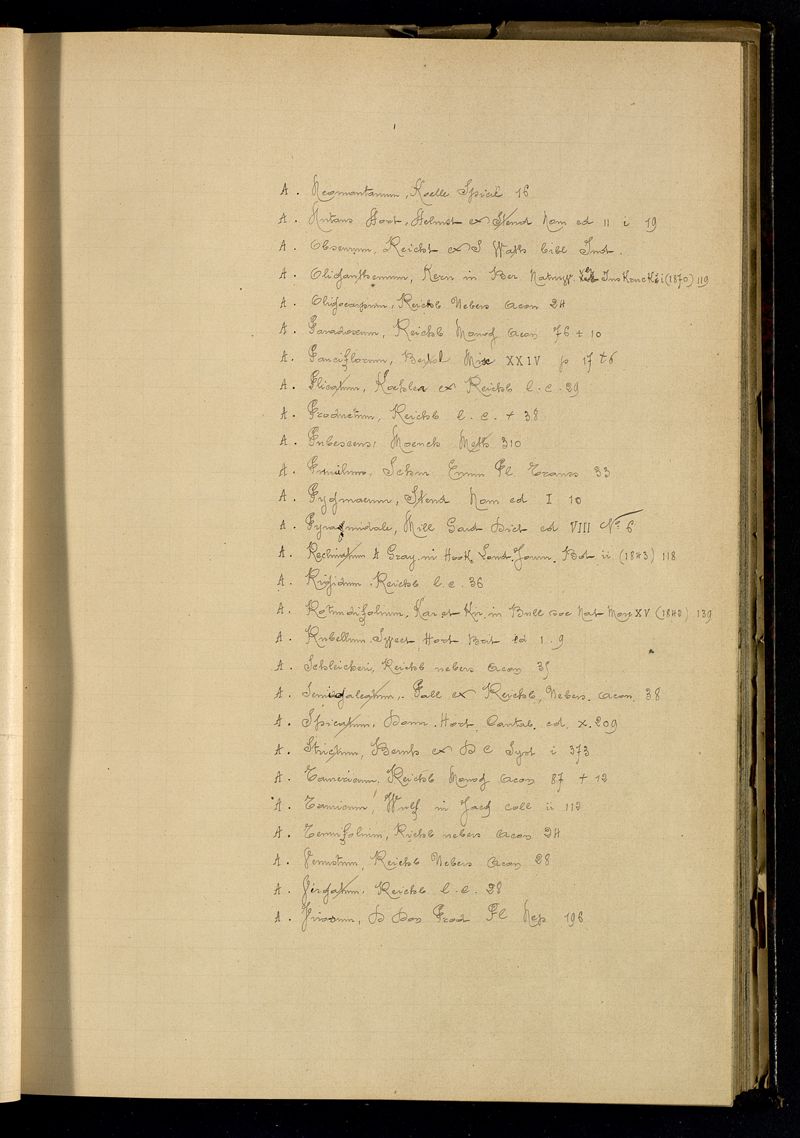 A. Neomontanum, Koelle Spicil 16
A. Nutans Hort. Helmst ex Steud Nom ed II i 19
A. Obscurum, Reichb ex S Wats bibl Ind.
A. Oliganthemum, Kern in Ber Naturw. Inskruck i (1870) 119
A. Oligocarpum, Reichb Uebers Acon 24
A. Paradoxum, Reichb Monog Acon 76 t 10
A. Pauciflorum, XXIV p 17 t 6
A. Plicatum, Koehler ex Reichb l. c. 29
A. Productum, Reichb l. c. t 38
A. Pubescens, Moench Meth 310
A. Pumilum, Schur Enum Pl Transs 33
A. Pygmaeum, Steud Nom ed I 10
A. Pyramidale, Mill Gard Dict ed VIII Nº 6
A. Reclinatum A Gray in Hook. Lond. Journ. Bot ii (1843) 118
A. Rigidum Reichb l. c. 36
A. Rotundifolium, Kar et Kir. in Bull soc Nat Mosc XV (1842) 139
A. Rubellum Sweet Hort Brit ed 1. 9
A. Schleicheri, Reichb uebers Acon 35
A. Semigaleatum, Pall ex Reichb, Uebers. Acon. 38
A. Spicatum, Donn Hort. Cantab. ed. X. 209
A. Strictum, Bernh ex D C Syst i 373
A. Tauericum. Reichb Monog Acon 87 t 12
A. Tauricum, Wulf in Jacq coll ii 112
A. Tenuifolium, Reichb uebers Acon 24
A. Venustum, Reichb Uebers Acon 28
A. Virgatum, Reichb l. c. 28
A. Virosum, D Don Prod Fl Nep 196